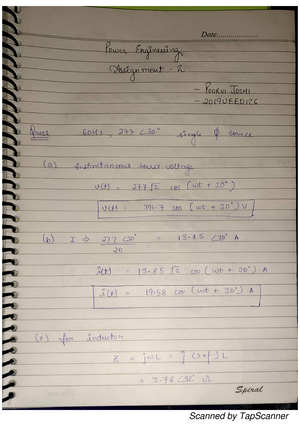 Date..................
Power Engineering
Assignment - 2
- POORVI JOSHI
- 2019UEED126
Ques: 60Hz, 277 ∠30° single ϕ source
(a) Instantaneous source voltage
v(t) = 277√2 cos (wt + 30°)
v(t) = 391.7 cos (wt + 30°) V
(b) I ⇒ 277 ∠30° / 20 = 13.85 ∠30° A
i(t) = 13.85 √2 cos (wt + 30°) A
i(t) = 19.58 cos (wt + 30°) A
(c) for inductor
Z = jωL = j (2πf) L
= 3.76 ∠90° Ω
Spiral
Scanned by TapScanner